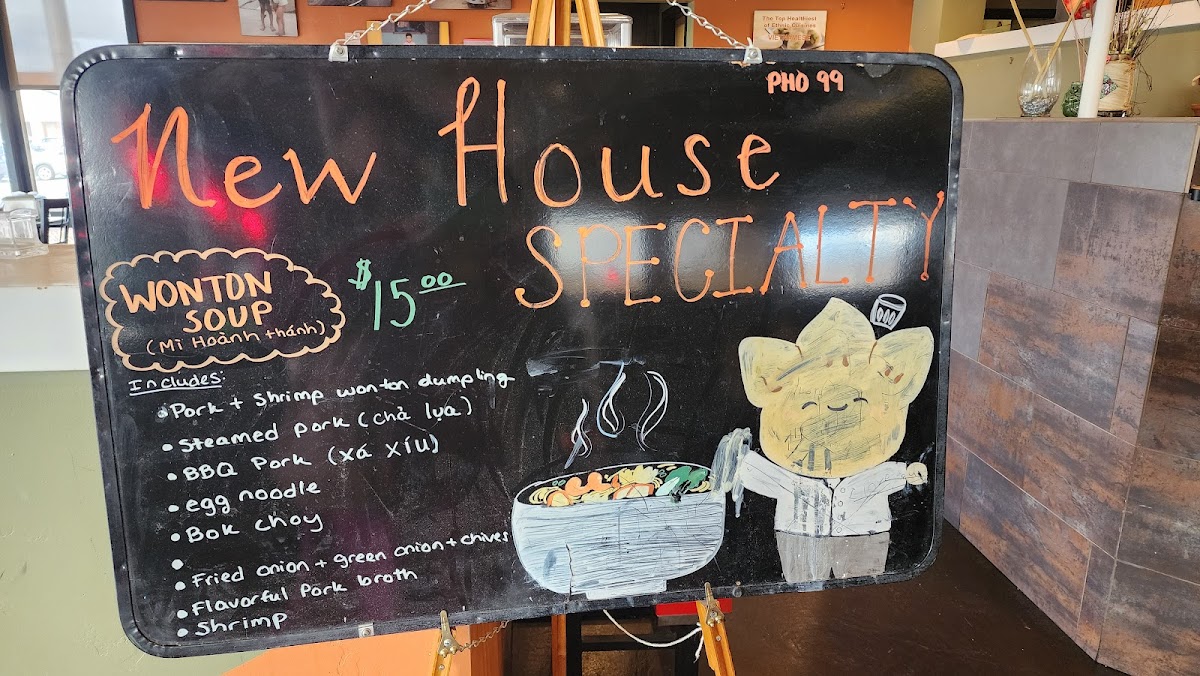 The Top Healthiest
of Ethnic Cuisines
PHO 99
New House
SPECIALTY
WONTON
SOUP
(Mì Hoành thánh)
$15.00
Includes:
• Pork + Shrimp wonton dumpling
• Steamed pork (chả lụa)
• BBQ Pork (xá xíu)
• egg noodle
• Bok choy
•
• Fried onion + green onion + chives
• Flavorful Pork broth
• Shrimp